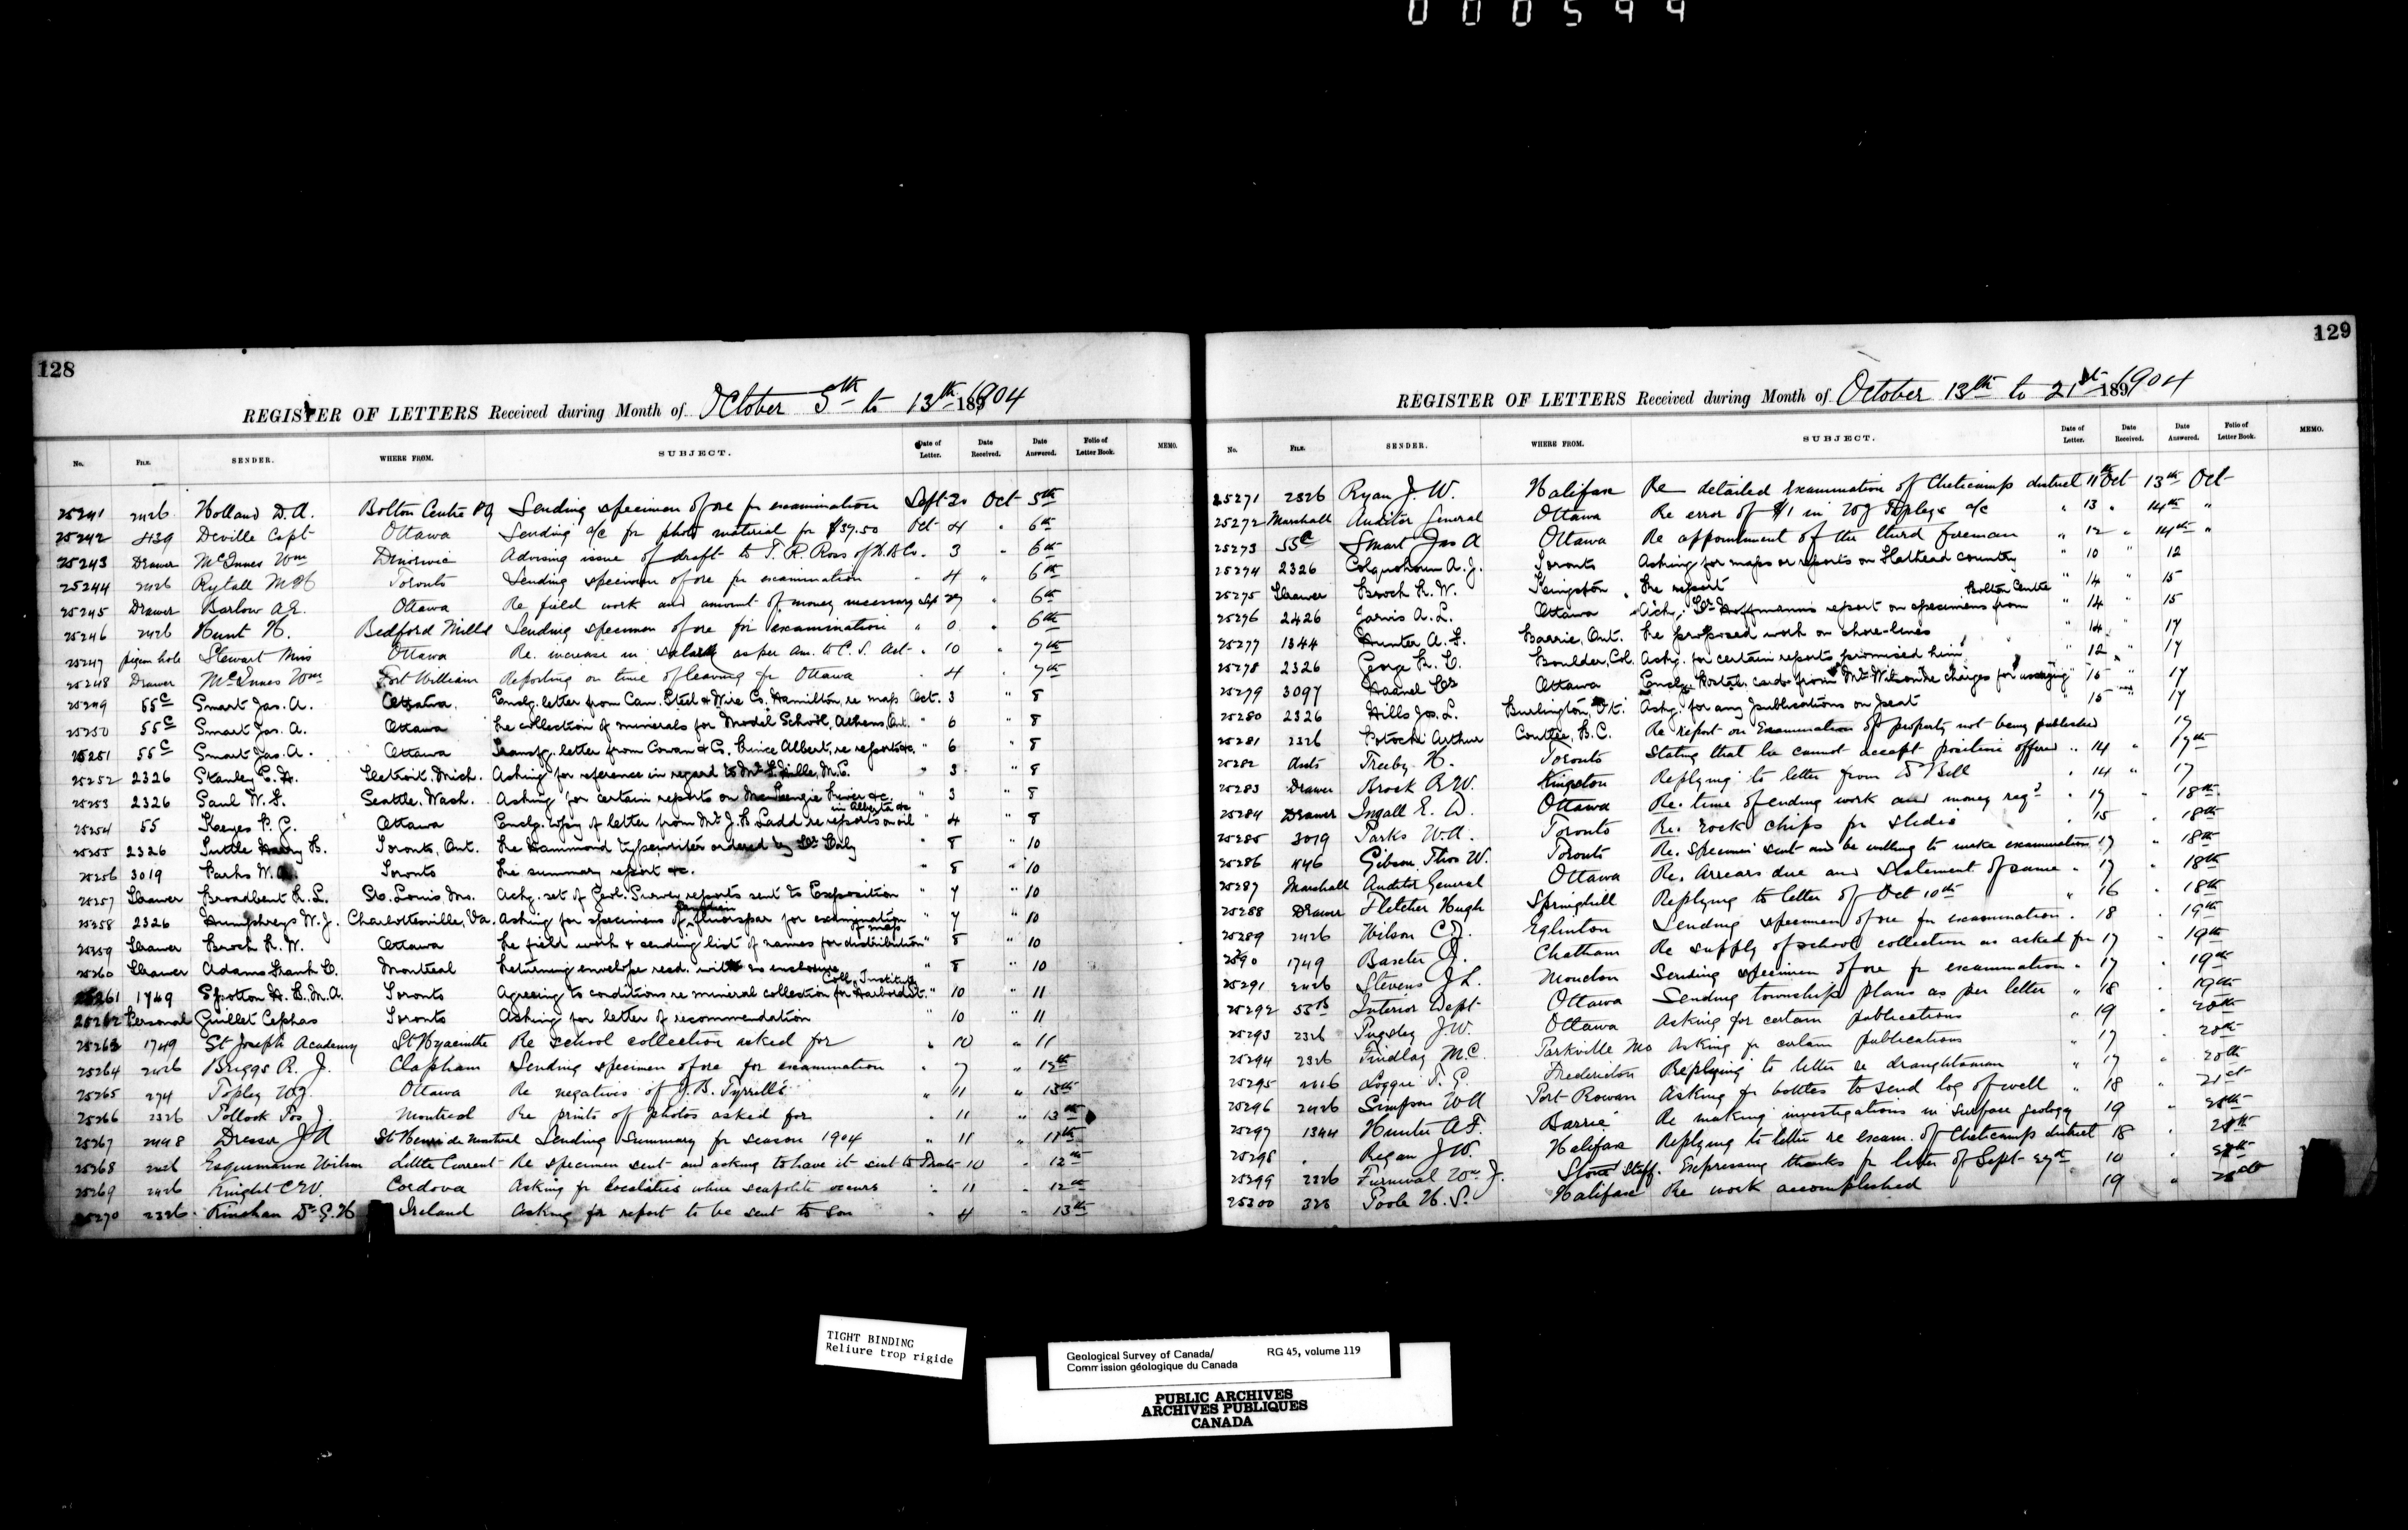 000599
128
REGISTER OF LETTERS Received during Month of October 5th to 13th 1904
No. FILE. SENDER. WHERE FROM. SUBJECT. Date of Letter. Date Received. Date Answered. Folio of Letter Book. MEMO.
25241 2426 Holland D. A. Bolton Centre PQ Sending specimen of ore for examination Sept 30 Oct 5th
25242 439 Deville Capt Ottawa Sending a/c for photo material for $39.50 Oct 4 " 6th
25243 Drawer McInnes Wm Dinorwic Advising issue of draft to T. R. Ross of H.B.Co. " 3 " 6th
25244 2426 Rytall Toronto Sending specimen of ore for examination " 4 " 6th
25245 Drawer Barlow A.E. Ottawa Re field work and amount of money necessary Sep 29 " 6th
25246 2426 Hunt H. Bedford Mills Sending specimen of ore for examination " 0 " 6th
25247 pigeon hole Stewart Miss Ottawa Re. increase in salary as per Am. to C. S. Act " 10 " 7th
25248 Drawer McInnes Wm Fort William Reporting on time of leaving for Ottawa " 4 " 7th
25249 55C Smart Jas. A. Ottawa. Enclg. letter from Can. Steel & Wire Co. Hamilton, re map Oct. 3 " 8
25250 55C Smart Jas. A. Ottawa Re collection of minerals for Model School, Athens, Ont. " 6 " 8
25251 55C Smart Jas. A. Ottawa Transfg. letter from Cowan & Co. Prince Albert, re reports &c. " 6 " 8
25252 2326 Stanley Detroit, Mich. Asking for reference in regard to Mr " 3 " 8
25253 2326 Paul W. F. Seattle, Wash. Asking for certain reports on MacKenzie River &c. " 3 " 8
25254 55 Keyes P. C. Ottawa Enclg. copy of letter from Mr. J. B. Ladd re reports on oil in Alberta &c " 4 " 8
25255 2326 Tuttle Harry B. Toronto, Ont. Re Hammond typewriter ordered by Dr. Daly " 8 " 10
25256 3019 Parks W. A. Toronto Re summary report &c. " 8 " 10
25257 Drawer Broadbent R. L. St. Louis, Mo. Ackg. set of Geol. Survey reports sent to Exposition " 7 " 10
25258 2326 Humphreys W. J. Charlottesville, Va. Asking for specimens of Canadian fluorspar for examination " 7 " 10
25259 Drawer Brock R. W. Ottawa Re field work & sending list of names for distribution of map " 8 " 10
25260 Drawer Adams Frank D. Montreal Returning envelope recd. with no enclosure " 8 " 10
25261 1749 Spotton H. B. M.A. Toronto Agreeing to conditions re mineral collection for Harbord St. Coll. Institute " 10 " 11
25262 Personal Guillet Cephas Toronto Asking for letter of recommendation " 10 " 11
25263 1749 St Joseph Academy St Hyacinthe Re school collection asked for " 10 " 11
25264 2426 Briggs R. J. Clapham Sending specimen of ore for examination " 7 " 12th
25265 274 Topley W.J. Ottawa Re negatives of J. B. Tyrrell's " 11 " 13th
25266 2326 Pollock Jos J. Montreal Re prints of photos asked for " 11 " 13th
25267 2448 Dresser J A St Henri de Montreal Sending Summary for season 1904 " 11 " 11th
25268 2426 Esquimaux Wilson Little Current Re specimen sent and asking to have it sent to 10 " 12th
25269 2426 Knight C.W. Cordova Asking for localities where scapolite occurs " 11 " 12th
25270 2326 Kinahan Dr G. H Ireland Asking for report to be sent to Son " 4 " 13th
129
REGISTER OF LETTERS Received during Month of October 13th to 21st 1904
No. FILE. SENDER. WHERE FROM. SUBJECT. Date of Letter. Date Received. Date Answered. Folio of Letter Book. MEMO.
25271 2326 Ryan J. W. Halifax Re detailed examination of Cheticamp district 11th Oct 13th Oct
25272 Marshall Auditor General Ottawa Re error of $1 in W J Topleys a/c " 13 " 14th "
25273 55C Smart Jas A Ottawa Re appointment of the third foreman " 12 " 14th "
25274 2326 Colquhoun A. J. Toronto Asking for maps or reports on Flathead country " 10 " 12
25275 Drawer Brock R. W. Kingston Re report " 14 " 15
25276 2426 Jarvis A. L. Ottawa Ackg. Dr. Hoffmann's report on specimens from Bolton Centre " 14 " 15
25277 1344 Hunter A. F. Barrie, Ont. Re proposed work on shore-lines " 14 " 17
25278 2326 George R. D. Boulder, Col. Askg. for certain reports promised him " 12 " 17
25279 3097 Haanel Dr Ottawa Enclg. Postal card from Mr. Wilson re charges for assaying " 15 " 17
25280 2326 Hills Jos. L. Burlington, Vt. Askg. for any publications on peat " 15 " 17
25281 2326 Potochi Arthur Couttee, B.C. Re report on Examination of property not being published 17
25282 Treeby H. Toronto Stating that he cannot accept position offered " 14 " 17th
25283 Drawer Brock R.W. Kingston Replying to letter from Dr Bell " 14 " 17
25284 Drawer Ingall E. D. Ottawa Re. time of ending work and money reqd " 17 " 18th
25285 3019 Parks W.A. Toronto Re. rock chips for slides " 15 " 18th
25286 Gibson Thos W. Toronto Re. specimen sent and be willing to make examination 17 " 18th
25287 Marshall Auditor General Ottawa Re. Arrears due and Statement of same " 17 " 18th
25288 Drawer Fletcher Hugh Springhill Replying to letter of Oct 10th " 16 " 18th
25289 2426 Wilson C.D. Eglinton Sending specimen of ore for examination " 18 " 19th
25290 1749 Baxter J. Chatham Re supply of school collection as asked for 17 " 19th
25291 2426 Stevens J L. Moncton Sending specimen of ore for examination " 17 " 19th
25292 55B Interior Dept Ottawa Sending township plans as per letter " 18 " 19th
25293 2326 Pugsley J.W. Ottawa Asking for certain publications " 19 20th
25294 2326 Findlay M.C. Parkville Mo Asking for certain publications " 17 " 20th
25295 Loggie T. G. Fredericton Replying to letter re draughtsman " 17 " 20th
25296 2426 Simpson W A Port Rowan Asking for bottles to send log of well " 18 " 21st
25297 1344 Hunter A.F. Barrie Re making investigations in surface geology 19 " 20th
25298 " Regan J.W. Halifax Replying to letter re exam. of Cheticamp district 18 "
25299 2326 Furnival Wm J. Stone Staff. Expressing thanks for letter of Sept 27th 10 "
25300 328 Poole H. S. Halifax Re work accomplished 19 "
TIGHT BINDING
Reliure trop rigide
Geological Survey of Canada/ RG 45, volume 119
Commission géologique du Canada
PUBLIC ARCHIVES
ARCHIVES PUBLIQUES
CANADA